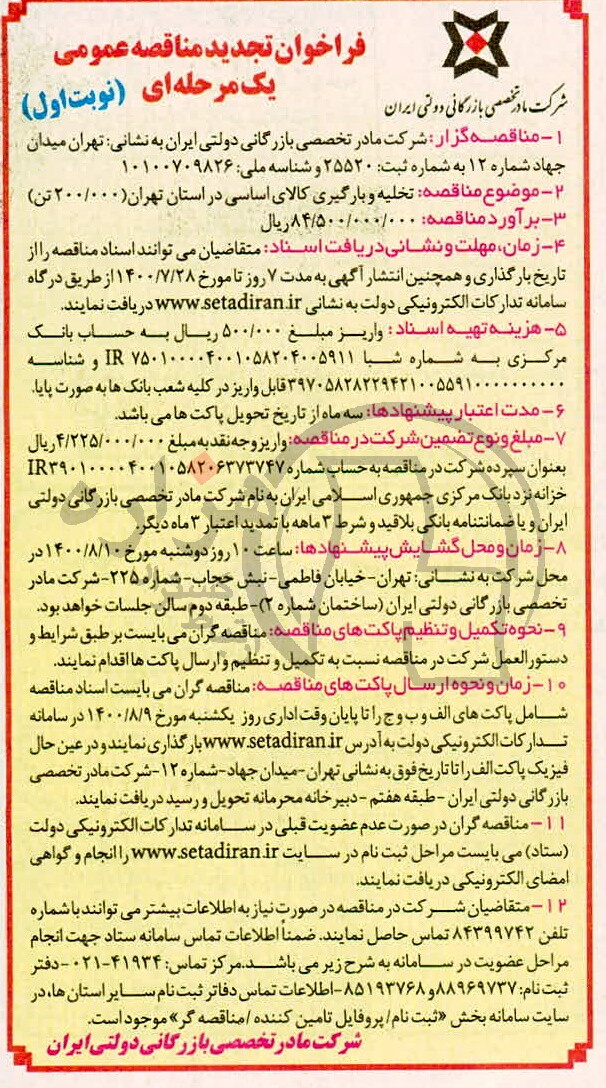 فراخوان تجدید مناقصه عمومی
یک مرحله‌ای (نوبت اول)
شرکت مادر تخصصی بازرگانی دولتی ایران
۱- مناقصه گزار: شرکت مادر تخصصی بازرگانی دولتی ایران به نشانی: تهران میدان
جهاد شماره ۱۲ به شماره ثبت: ۲۵۵۲۰ و شناسه ملی: ۱۰۱۰۰۷۰۹۸۲۶
۲- موضوع مناقصه: تخلیه و بارگیری کالای اساسی در استان تهران (۲۰۰/۰۰۰ تن)
۳- برآورد مناقصه: ۸۴/۵۰۰/۰۰۰/۰۰۰ ریال
۴- زمان، مهلت و نشانی دریافت اسناد: متقاضیان می توانند اسناد مناقصه را از
تاریخ بارگذاری و همچنین انتشار آگهی به مدت ۷ روز تا مورخ ۱۴۰۰/۷/۲۸ از طریق درگاه
سامانه تدارکات الکترونیکی دولت به نشانی www.setadiran.ir دریافت نمایند.
۵- هزینه تهیه اسناد: واریز مبلغ ۵۰۰/۰۰۰ ریال به حساب بانک
مرکزی به شماره شبا IR ۷۵۰۱۰۰۰۰۴۰۰۱۰۵۸۲۰۴۰۰۵۹۱۱ و شناسه
۳۹۷۰۵۸۲۸۲۲۹۴۲۱۰۰۵۵۹۱۰۰۰۰۰۰۰۰۰۰ قابل واریز در کلیه شعب بانک ها به صورت پایا.
۶- مدت اعتبار پیشنهادها: سه ماه از تاریخ تحویل پاکت ها می باشد.
۷- مبلغ و نوع تضمین شرکت در مناقصه: واریز وجه نقد به مبلغ ۴/۲۲۵/۰۰۰/۰۰۰ ریال
بعنوان سپرده شرکت در مناقصه به حساب شماره IR۳۹۰۱۰۰۰۰۴۰۰۱۰۵۸۲۰۶۳۷۳۷۴۷
خزانه نزد بانک مرکزی جمهوری اسلامی ایران به نام شرکت مادر تخصصی بازرگانی دولتی
ایران و یا ضمانتنامه بانکی بلاقید و شرط ۳ ماهه با تمدید اعتبار ۳ ماه دیگر.
۸- زمان و محل گشایش پیشنهادها: ساعت ۱۰ روز دوشنبه مورخ ۱۴۰۰/۸/۱۰ در
محل شرکت به نشانی: تهران- خیابان فاطمی- نبش حجاب- شماره ۲۲۵- شرکت مادر
تخصصی بازرگانی دولتی ایران (ساختمان شماره ۲)- طبقه دوم سالن جلسات خواهد بود.
۹- نحوه تکمیل و تنظیم پاکت های مناقصه: مناقصه گران می بایست بر طبق شرایط و
دستورالعمل شرکت در مناقصه نسبت به تکمیل و تنظیم و ارسال پاکت ها اقدام نمایند.
۱۰- زمان و نحوه ارسال پاکت های مناقصه: مناقصه گران می بایست اسناد مناقصه
شامل پاکت های الف و ب و ج را تا پایان وقت اداری روز یکشنبه مورخ ۱۴۰۰/۸/۹ در سامانه
تدارکات الکترونیکی دولت به آدرس www.setadiran.ir بارگذاری نمایند و در عین حال
فیزیک پاکت الف را تا تاریخ فوق به نشانی تهران- میدان جهاد- شماره ۱۲- شرکت مادر تخصصی
بازرگانی دولتی ایران - طبقه هفتم - دبیرخانه محرمانه تحویل و رسید دریافت نمایند.
۱۱- مناقصه گران در صورت عدم عضویت قبلی در سامانه تدارکات الکترونیکی دولت
(ستاد) می بایست مراحل ثبت نام در سایت www.setadiran.ir را انجام و گواهی
امضای الکترونیکی دریافت نمایند.
۱۲- متقاضیان شرکت در مناقصه در صورت نیاز به اطلاعات بیشتر می توانند با شماره
تلفن ۸۴۳۹۹۷۴۲ تماس حاصل نمایند. ضمناً اطلاعات تماس سامانه ستاد جهت انجام
مراحل عضویت در سامانه به شرح زیر می باشد. مرکز تماس: ۴۱۹۳۴-۰۲۱- دفتر
ثبت نام: ۸۸۹۶۹۷۳۷ و ۸۵۱۹۳۷۶۸- اطلاعات تماس دفاتر ثبت نام سایر استان ها، در
سایت سامانه بخش «ثبت نام/ پروفایل تامین کننده / مناقصه گر» موجود است.
شرکت مادر تخصصی بازرگانی دولتی ایران